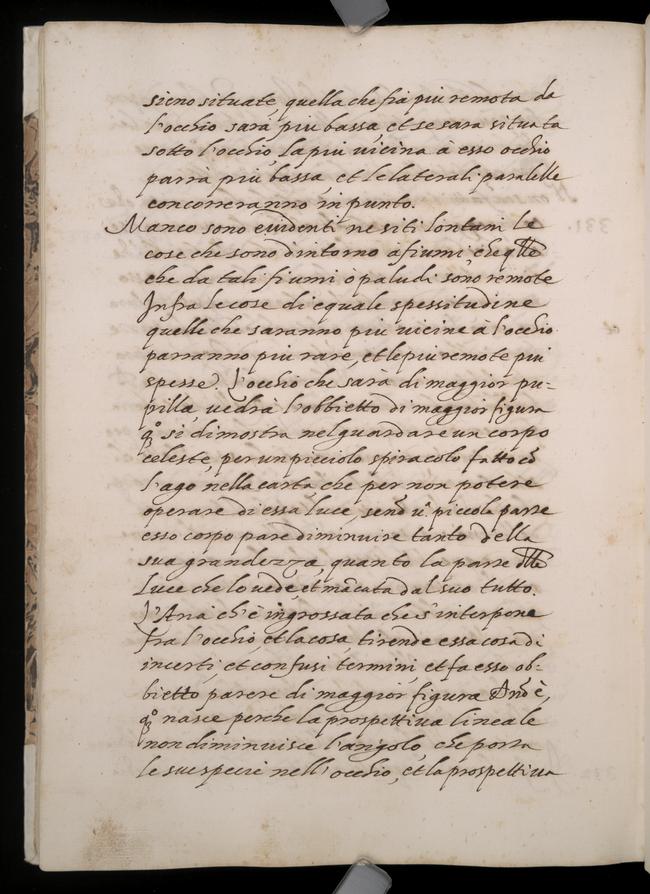 sieno situate, quella che fia piu remota da
l'occhio sarà piu bassa, et se sara situata
sotto l'occhio, la piu uicina à esso occhio
parrà più bassa, et le laterali paralelle
concorreranno in punto.
Manco sono euidenti ne siti lontani le
cose che sono d'intorno à fiumi, che qlle
che da tali fiumi ò paludi sono remote
Infra le cose di equale spessitudine
quelle che saranno piu uicine à l'occhio
parranno piu rare, et le piu remote piu
spesse. L'occhio che sarà di maggior pu-
pilla, uedrà l'obbietto di maggior figura
qo si dimostra nel guardare un corpo
celeste, per un picciolo spiracolo fatto cō
l'ago nella carta, che per non potere
operare di essa luce, senō ua piccola parte
esso corpo pare diminuire tanto della
sua grandezza, quanto la parte dlla
Luce che lo uede, et mācata dal suo tutto.
L'Aria ch'è ingrossata che s'interpone
fra l'occhio, et la cosa, ti rende essa cosa di
incerti, et confusi termini, et fa esso ob-
bietto parere di maggior figura che nō è,
qo nasce perche la prospettiua lineale
non diminuisce l'angolo, che porta
le sue specie nell'occhio, et la prospettiua